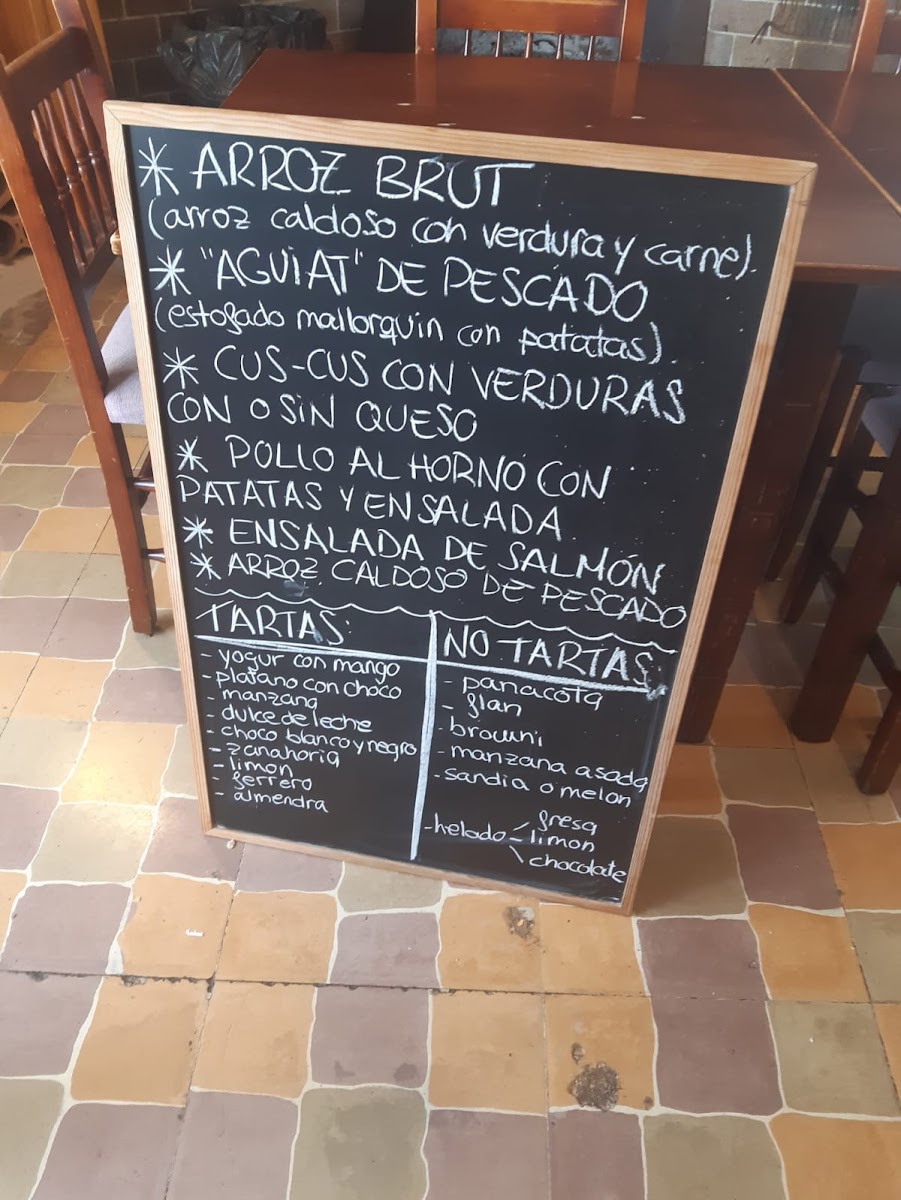 * ARROZ BRUT
(arroz caldoso con verdura y carne).
* "AGUIAT" DE PESCADO
(estofado mallorquin con patatas).
* CUS-CUS CON VERDURAS
CON O SIN QUESO
* POLLO AL HORNO CON
PATATAS Y ENSALADA
* ENSALADA DE SALMÓN
* ARROZ CALDOSO DE PESCADO
TARTAS:
- yogur con mango
- platano con choco
- manzana
- dulce de leche
- choco blanco y negro
- zanahoria
- limon
- ferrero
- almendra
NO TARTAS:
- panacota
- flan
- browni
- manzana asada
- sandia o melon
- helado - fresa
limon
chocolate